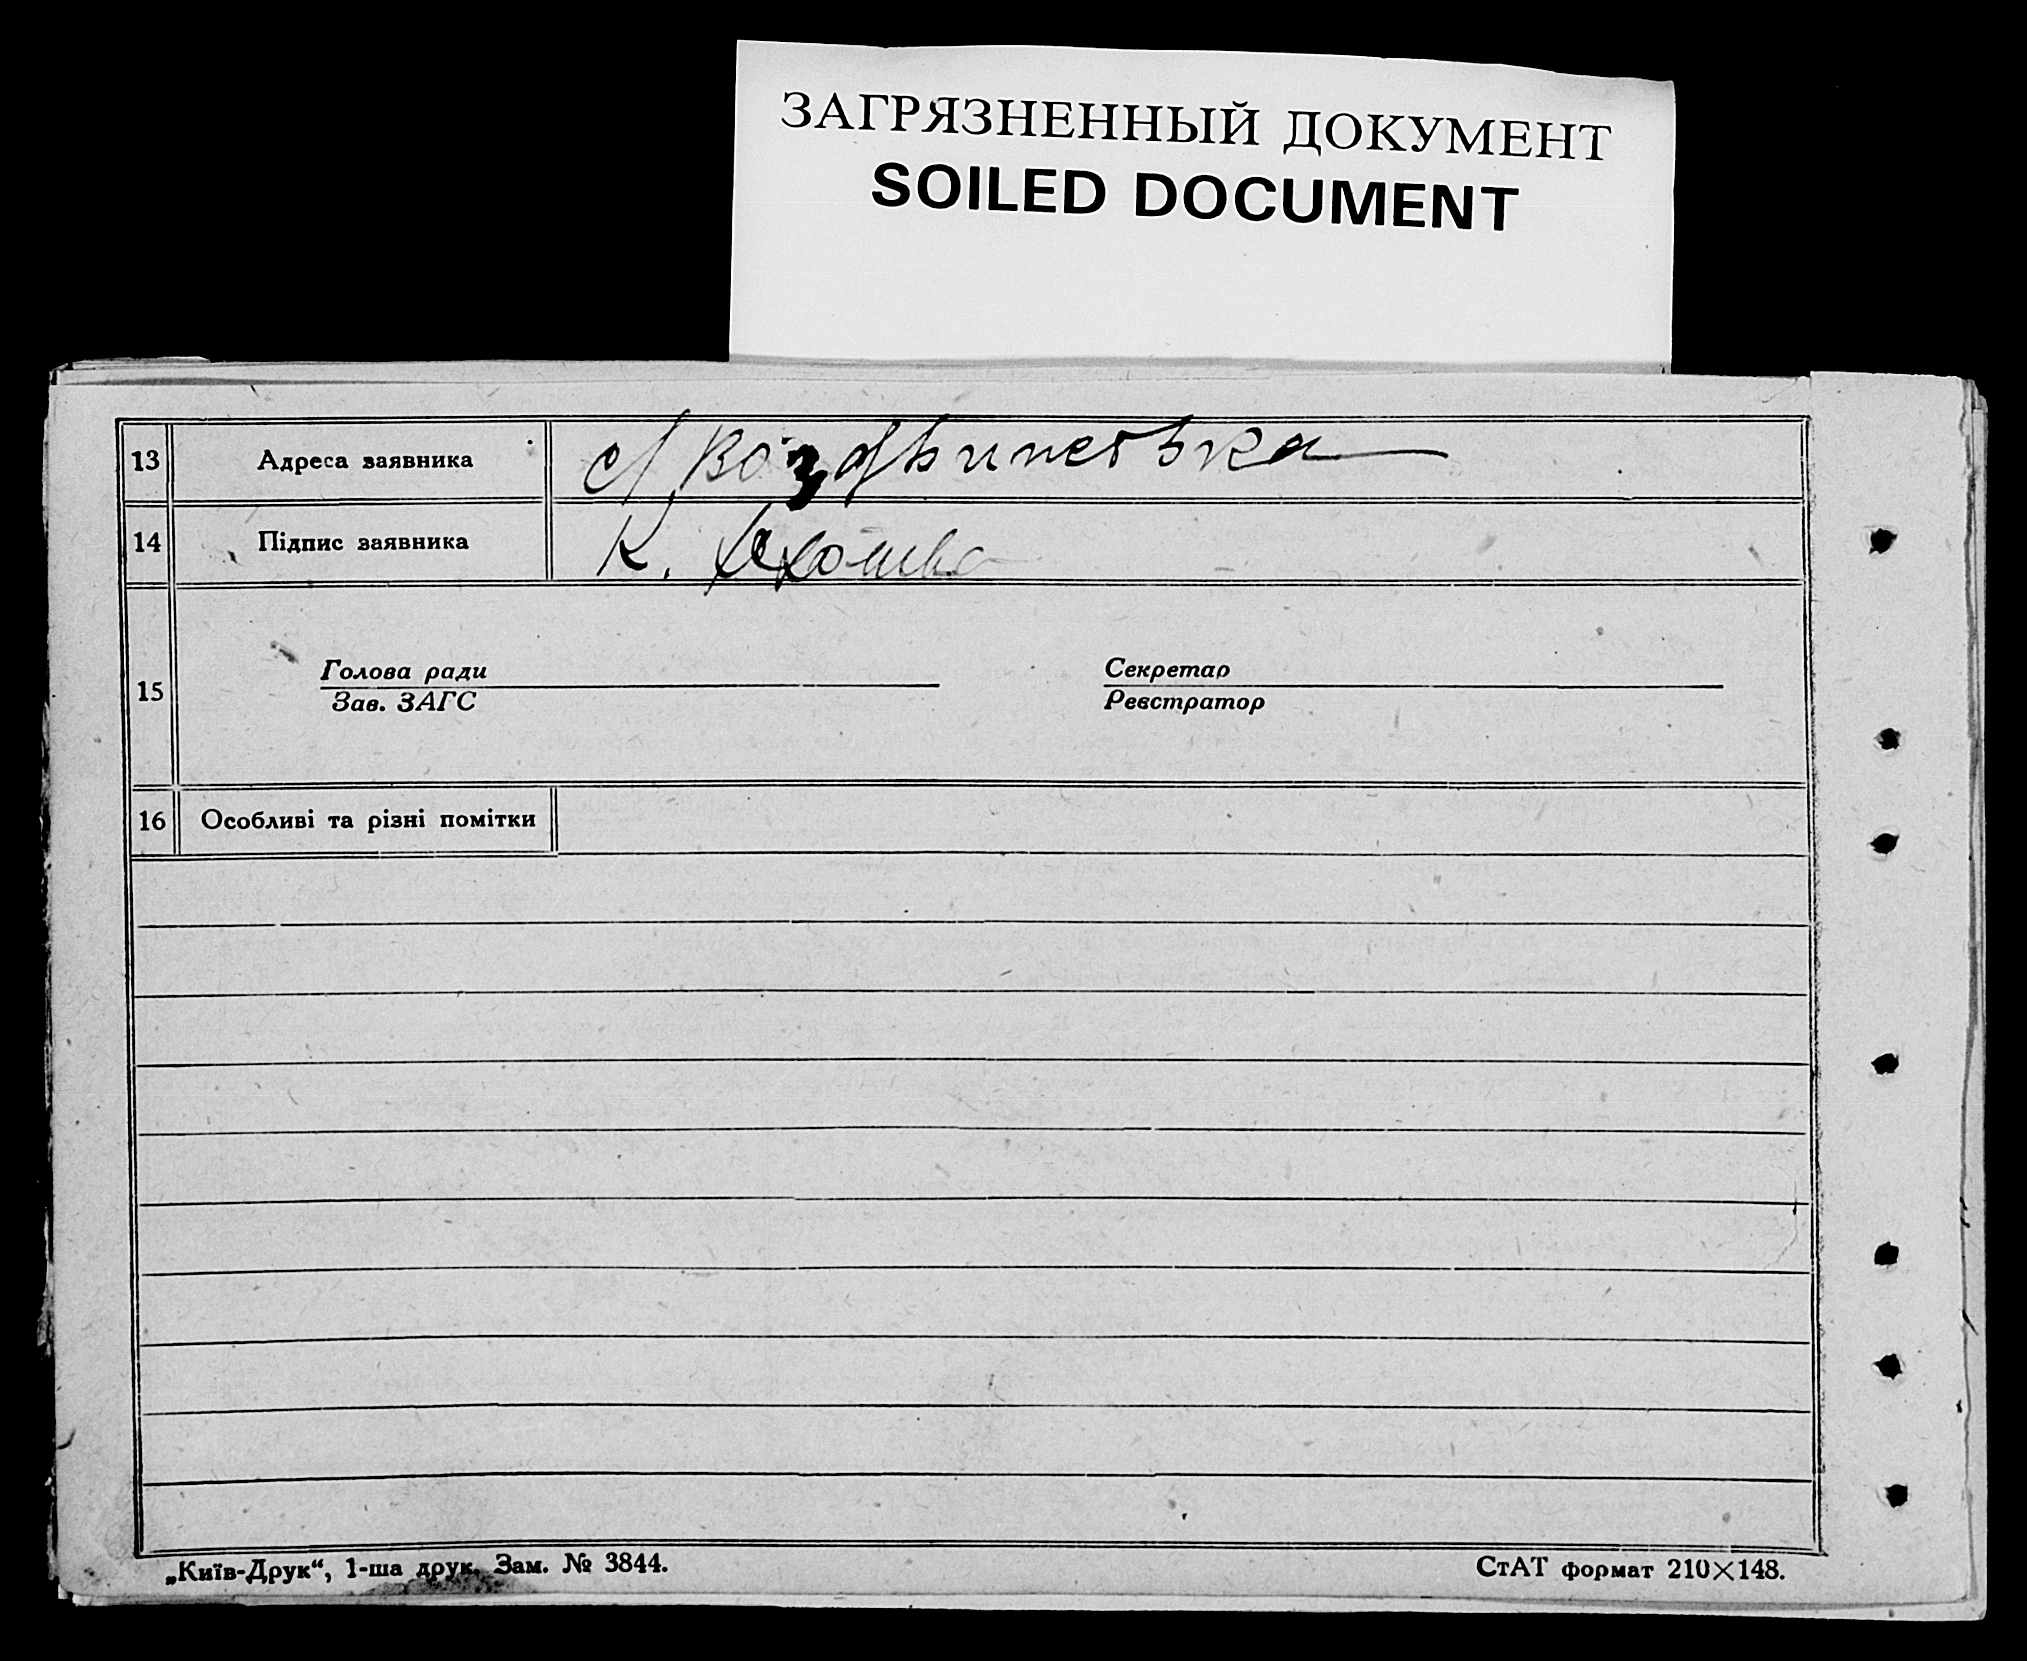 ЗАГРЯЗНЕННЫЙ ДОКУМЕНТ
SOILED DOCUMENT
13 Адреса заявника с/
14 Підпис заявника К.
15
Голова ради Секретар
Зав. ЗАГС Реєстратор
16 Особливі та різні помітки
„Київ-Друк“, 1-ша друк. Зам. № 3844. СтАТ формат 210×148.